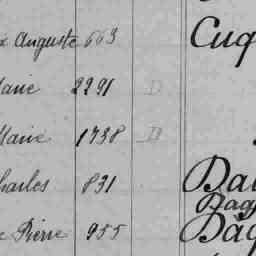 Auguste 663 Cuq
Marie 2291 D
Marie 1738 D
Charles 831 Dal
Dag
Pierre 955 Dag